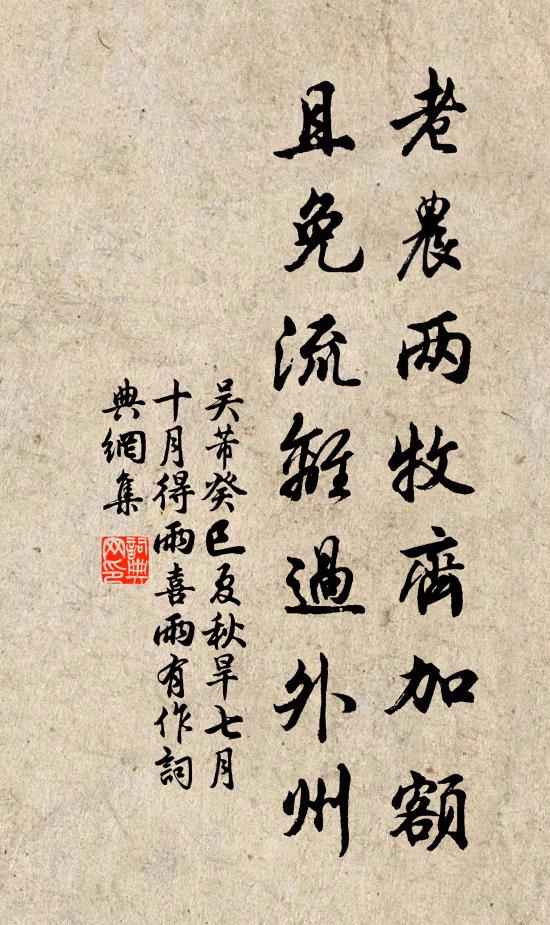 老農两牧齊加額
且免流離過外州
吴芾癸巳夏秋旱七月
十月得雨喜雨有作詞
典網集
詞典網印